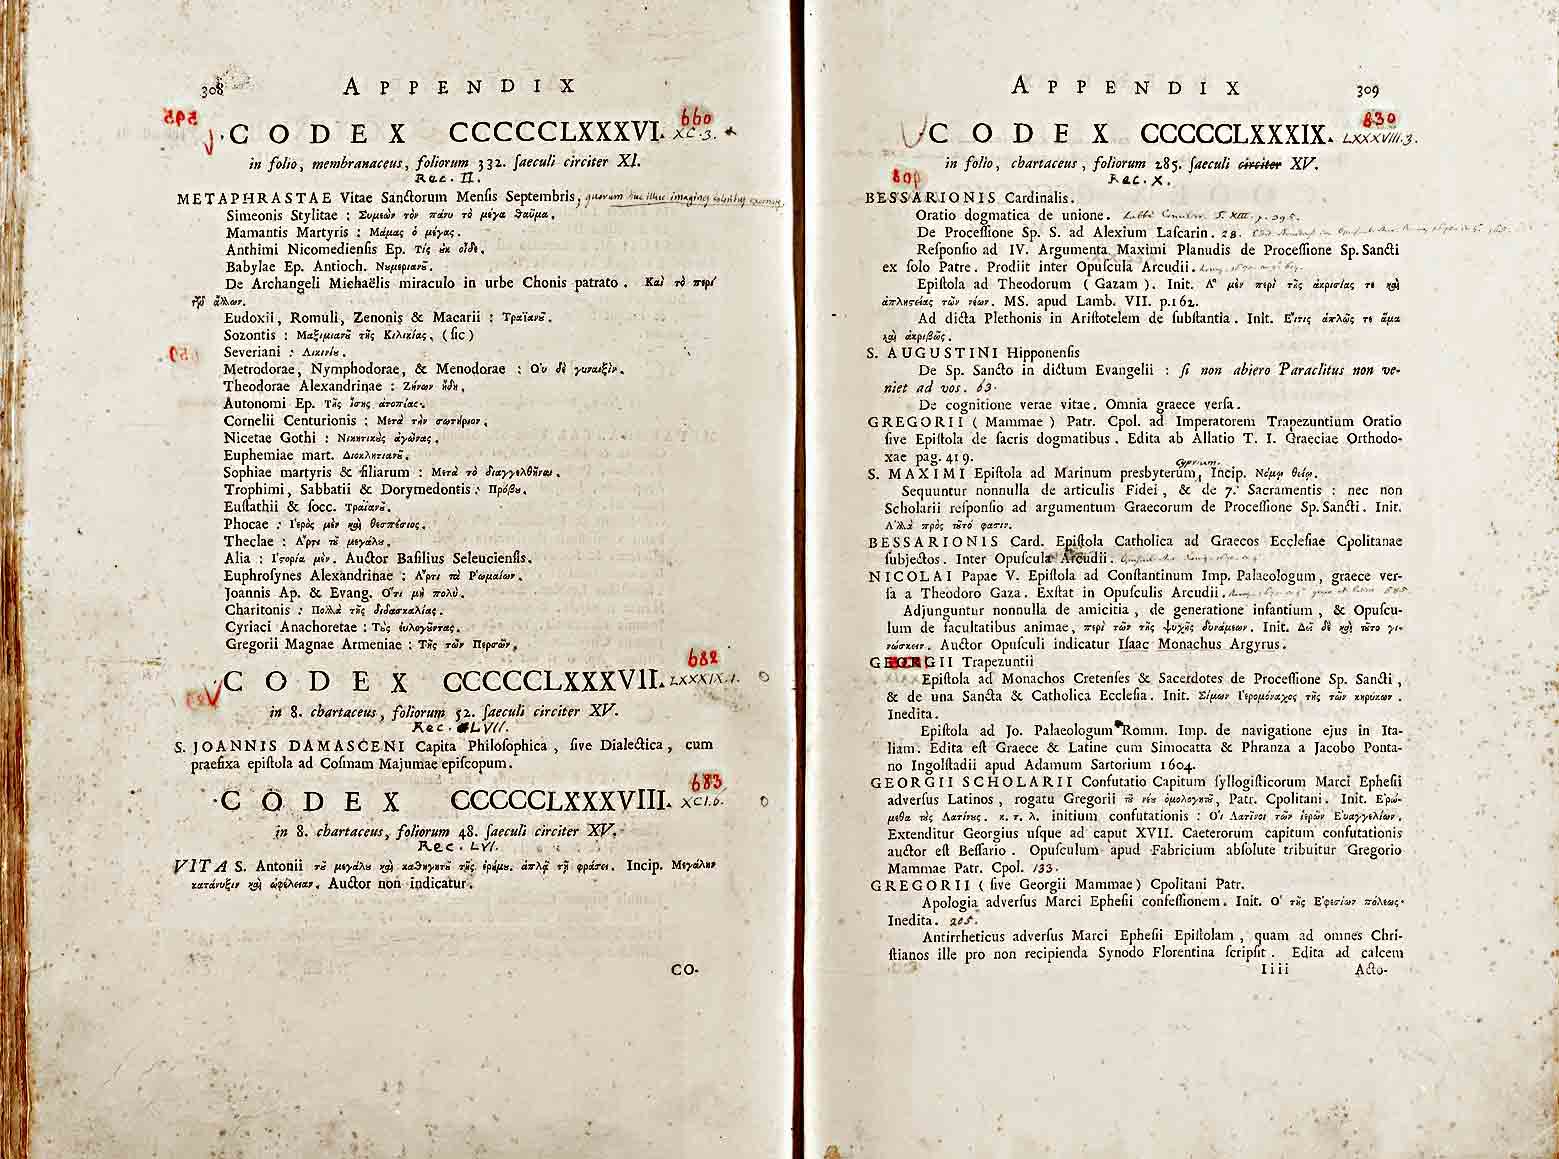 308
APPENDIX
595
660
CODEX CCCCCLXXXVI. XC.3.
in folio, membranaceus, foliorum 332. ſaeculi circiter XI.
Rec. II.
METAPHRASTAE Vitae Sanctorum Menſis Septembris,
Simeonis Stylitae : Συμεὼν τὸν πάνυ τὸ μέγα θαῦμα.
Mamantis Martyris : Μάμας ὁ μέγας.
Anthimi Nicomedienſis Ep. Τίς ὐκ οἶδε.
Babylae Ep. Antioch. Νυμεριανῦ.
De Archangeli Michaëlis miraculo in urbe Chonis patrato. Καὶ τὸ περὶ
τῶ ἄλλων.
Eudoxii, Romuli, Zenonis & Macarii : Τραϊανῦ.
Sozontis : Μαξιμιανῦ τῆς Κιλικίας, (ſic)
Severiani : Λικινίυ.
Metrodorae, Nymphodorae, & Menodorae : Οὐ δὲ γυναιξὶν.
Theodorae Alexandrinae : Ζήνων ἤδη,
Autonomi Ep. Τῆς ἴσης ἀτοπίας.
Cornelii Centurionis : Μετὰ τὴν σωτήριον.
Nicetae Gothi : Νικητικὸς ἀγῶνας.
Euphemiae mart. Διοκλητιανῦ.
Sophiae martyris & filiarum : Μετὰ τὸ διαγγελθῆναι.
Trophimi, Sabbatii & Dorymedontis : Πρόβυ.
Euſtathii & ſocc. Τραϊανῦ.
Phocae : Ἱερὸς μὲν καὶ θεσπέσιος.
Theclae : Ἄρτι τῦ μεγάλυ.
Alia : Ἱστορία μὲν. Auctor Baſilius Seleucienſis.
Euphroſynes Alexandrinae : Ἄρτι τὰ Ῥωμαίων.
Joannis Ap. & Evang. Ὅτι μὴ πολὺ.
Charitonis : Πολλὰ τῆς διδασκαλίας.
Cyriaci Anachoretae : Τὺς εὐλογῦντας.
Gregorii Magnae Armeniae : Τῆς τῶν Περσῶν.
682
CODEX CCCCCLXXXVII. LXXXIX.1.
in 8. chartaceus, foliorum 52. ſaeculi circiter XV.
Rec. LVII.
S. JOANNIS DAMASCENI Capita Philoſophica, ſive Dialectica, cum
praefixa epiſtola ad Coſmam Majumae epiſcopum.
683
CODEX CCCCCLXXXVIII. XCI.6.
in 8. chartaceus, foliorum 48. ſaeculi circiter XV.
Rec. LVI.
VITA S. Antonii τῦ μεγάλυ καὶ καθηγητῦ τῆς ἐρήμυ. ἁπλῇ τῇ φράσει. Incip. Μεγάλην
κατάνυξιν καὶ ὠφέλειαν. Auctor non indicatur.
CO-
APPENDIX
309
830
CODEX CCCCCLXXXIX. LXXXVIII.3.
in folio, chartaceus, foliorum 285. ſaeculi circiter XV.
Rec. X.
BESSARIONIS Cardinalis.
Oratio dogmatica de unione.
De Proceſſione Sp. S. ad Alexium Laſcarin. 28.
Reſponſio ad IV. Argumenta Maximi Planudis de Proceſſione Sp. Sancti
ex ſolo Patre. Prodiit inter Opuſcula Arcudii.
Epiſtola ad Theodorum (Gazam). Init. Ἃ μὲν περὶ τῆς ἀκρισίας τε καὶ
ἀπληστείας τῶν νέων. MS. apud Lamb. VII. p.162.
Ad dicta Plethonis in Ariſtotelem de ſubſtantia. Init. Εἴτις ἁπλῶς τε ἅμα
καὶ ἀκριβῶς.
S. AUGUSTINI Hipponenſis
De Sp. Sancto in dictum Evangelii : ſi non abiero Paraclitus non ve-
niet ad vos. 63.
De cognitione verae vitae. Omnia graece verſa.
GREGORII (Mammae) Patr. Cpol. ad Imperatorem Trapezuntium Oratio
ſive Epiſtola de ſacris dogmatibus. Edita ab Allatio T. I. Graeciae Orthodo-
xae pag. 419.
Cyprium.
S. MAXIMI Epiſtola ad Marinum presbyterum, Incip. Νόμῳ θείῳ.
Sequuntur nonnulla de articulis Fidei, & de 7. Sacramentis : nec non
Scholarii reſponſio ad argumentum Graecorum de Proceſſione Sp. Sancti. Init.
Ἀλλὰ πρὸς τῦτό φασιν.
BESSARIONIS Card. Epiſtola Catholica ad Graecos Eccleſiae Cpolitanae
ſubjectos. Inter Opuſcula Arcudii.
NICOLAI Papae V. Epiſtola ad Conſtantinum Imp. Palaeologum, graece ver-
ſa a Theodoro Gaza. Exſtat in Opuſculis Arcudii.
Adjunguntur nonnulla de amicitia, de generatione infantium, & Opuſcu-
lum de facultatibus animae, περὶ τῶν τῆς ψυχῆς δυνάμεων. Init. Δεῖ δὲ καὶ τῦτο γι-
νώσκειν. Auctor Opuſculi indicatur Iſaac Monachus Argyrus.
GEORGII Trapezuntii
Epiſtola ad Monachos Cretenſes & Sacerdotes de Proceſſione Sp. Sancti,
& de una Sancta & Catholica Eccleſia. Init. Σίμων Ἱερομόναχος τῆς τῶν κηρύκων.
Inedita.
Epiſtola ad Jo. Palaeologum Romm. Imp. de navigatione ejus in Ita-
liam. Edita eſt Graece & Latine cum Simocatta & Phranza a Jacobo Ponta-
no Ingolſtadii apud Adamum Sartorium 1604.
GEORGII SCHOLARII Confutatio Capitum ſyllogiſticorum Marci Epheſii
adverſus Latinos, rogatu Gregorii τῦ νέυ ὁμολογητῦ, Patr. Cpolitani. Init. Ἐρώ-
μεθα τὺς Λατίνυς. κ. τ. λ. initium confutationis : Οἱ Λατῖνοι τῶν ἱερῶν Εὐαγγελίων.
Extenditur Georgius uſque ad caput XVII. Caeterorum capitum confutationis
auctor eſt Beſſario. Opuſculum apud Fabricium abſolute tribuitur Gregorio
Mammae Patr. Cpol. 133.
GREGORII (ſive Georgii Mammae) Cpolitani Patr.
Apologia adverſus Marci Epheſii confeſſionem. Init. Ὁ τῆς Ἐφεσίων πόλεως.
Inedita. 205.
Antirrheticus adverſus Marci Epheſii Epiſtolam, quam ad omnes Chri-
ſtianos ille pro non recipienda Synodo Florentina ſcripſit. Edita ad calcem
Iiii
Acto-